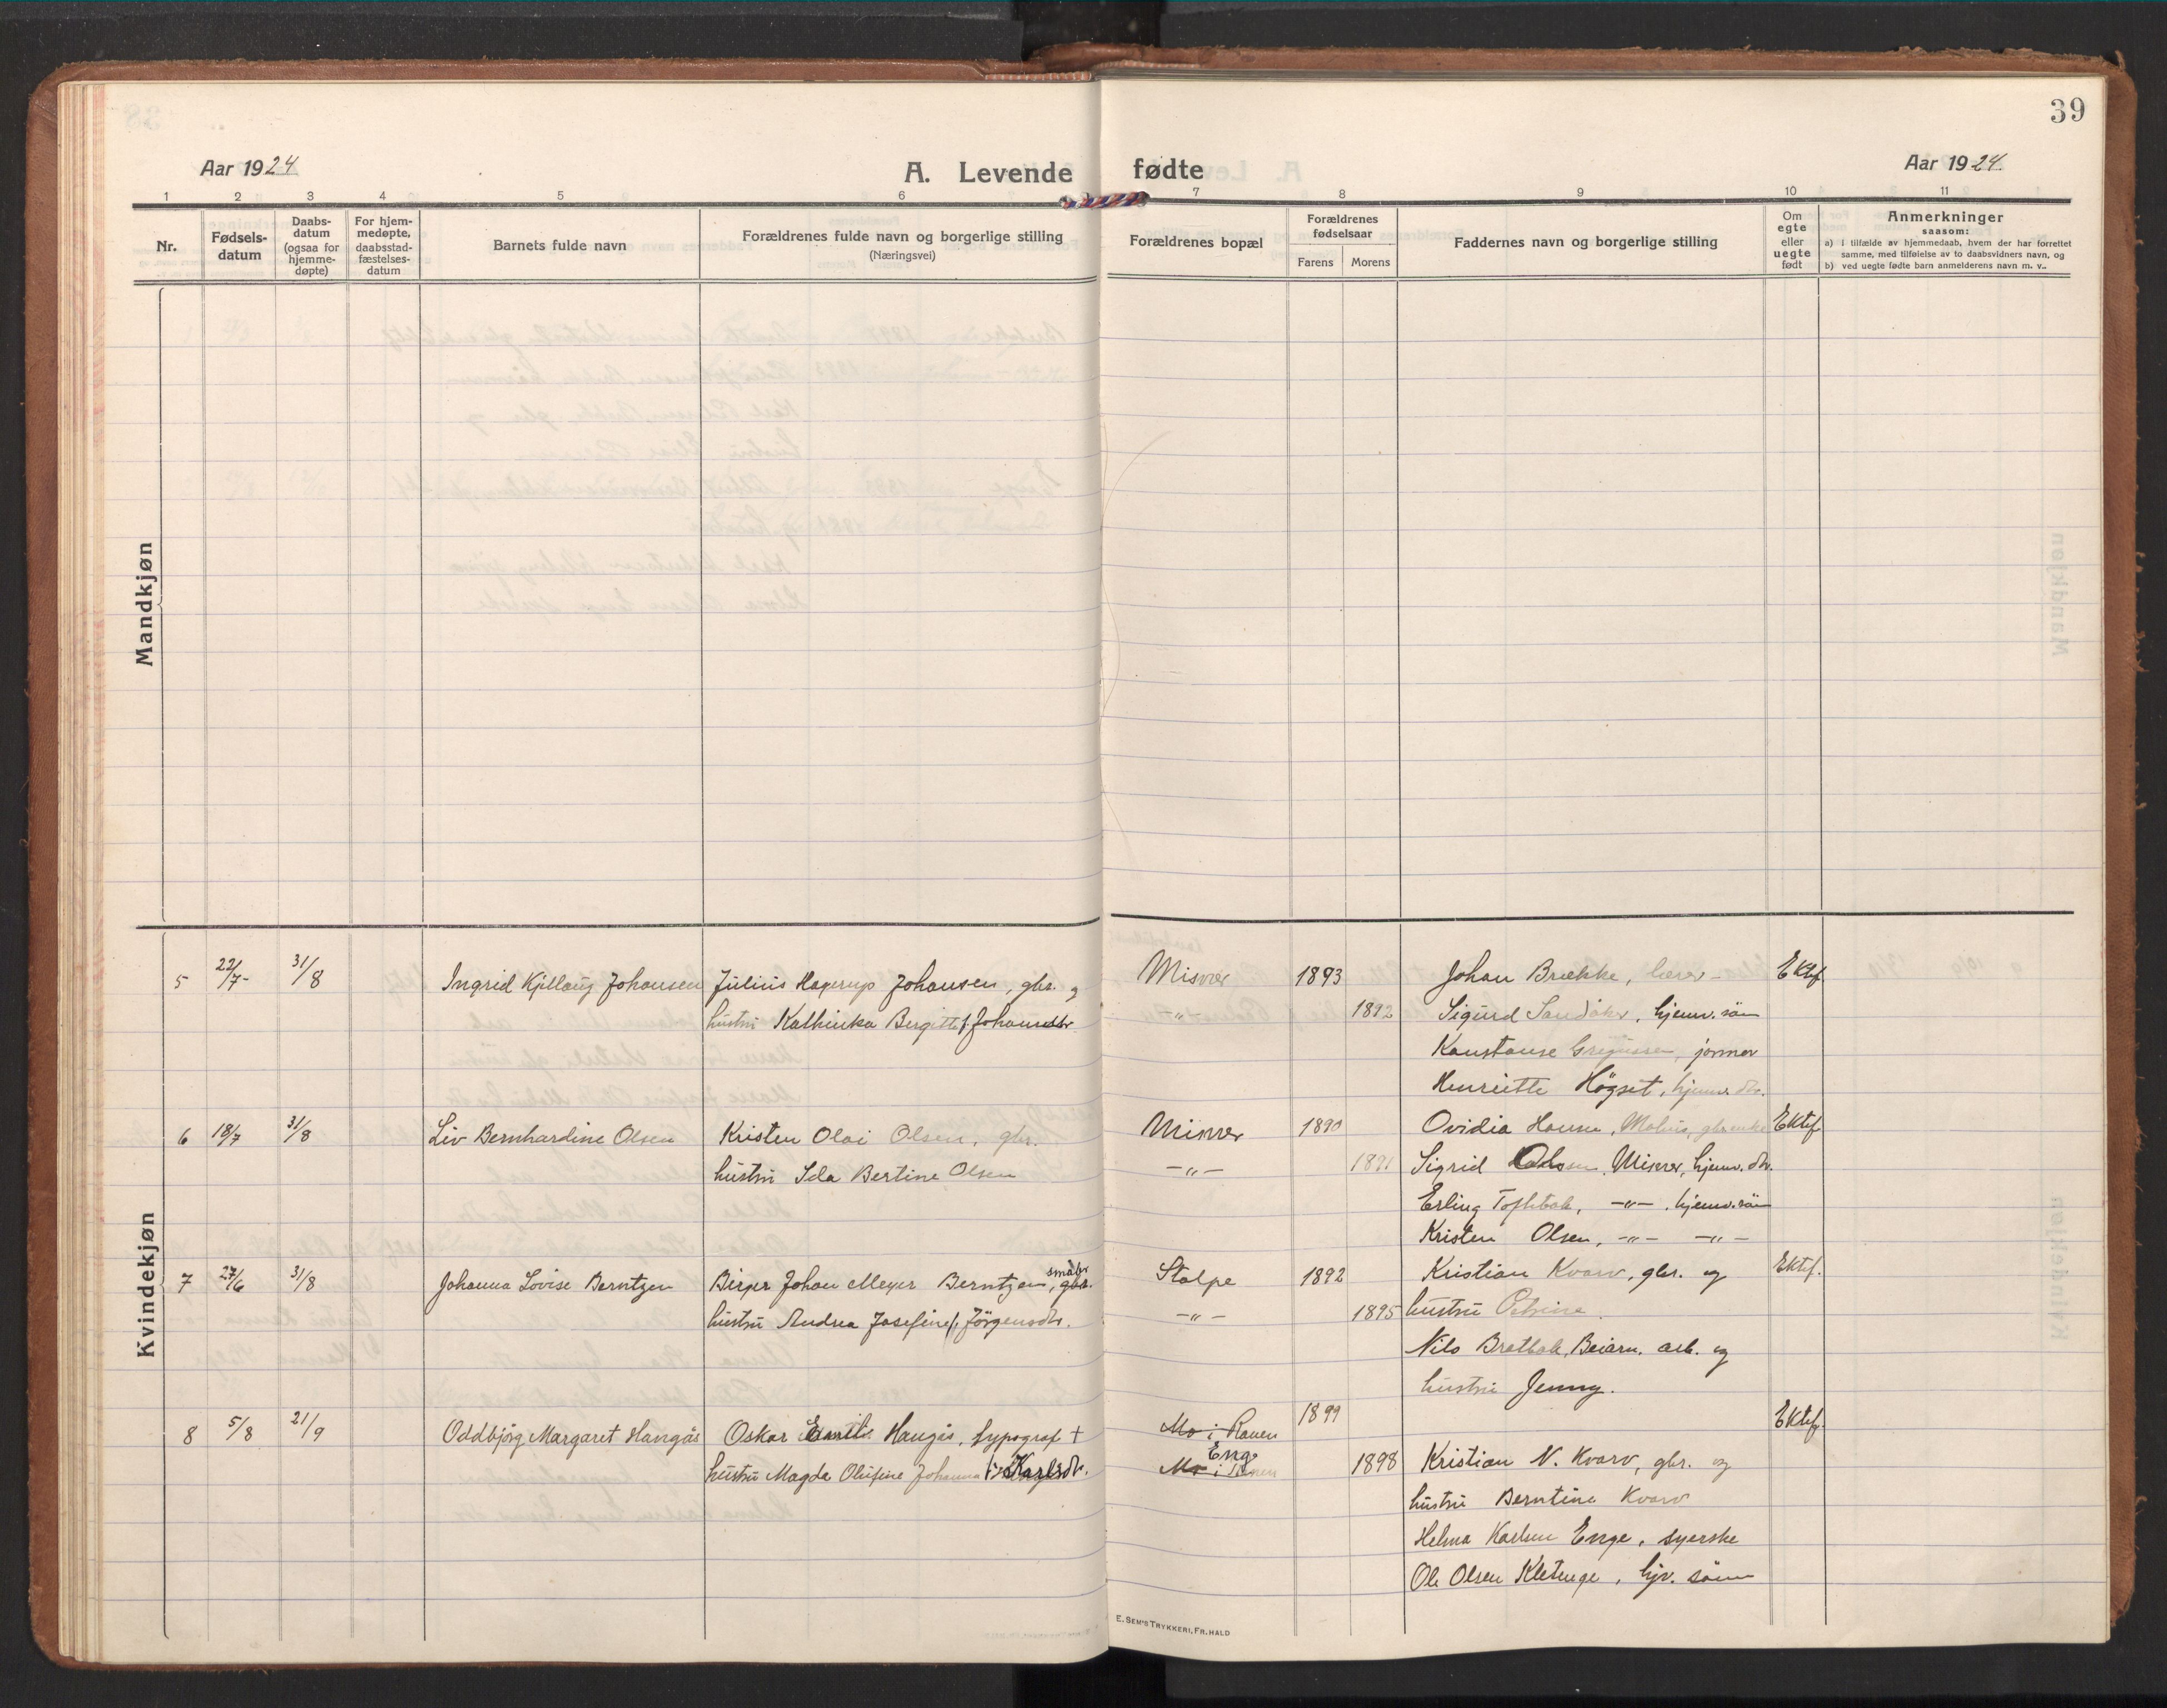 39
Aar 1924
A. Levende fødte
Aar 1924
1 2 3 4 5 6 7 8 9 10 11
Nr.
Fødsels-
datum
Daabs-
datum
(ogsaa for
hjemme-
døpte)
For hjem-
medøpte,
daabsstad-
fæstelses-
datum
Barnets fulde navn
Forældrenes fulde navn og borgerlige stilling
(Næringsvei)
Forældrenes bopæl
Forældrenes
fødselsaar
Farens Morens
Faddernes navn og borgerlige stilling
Om
egte
eller
uegte
født
Anmerkninger
saasom:
a) i tilfælde av hjemmedaab, hvem der har forrettet
samme, med tilføielse av to daabsvidners navn, og
b) ved uegte fødte barn anmelderens navn m. v..
Mandkjøn
Kvindekjøn
5 22/7- 31/8 Ingrid Kjellaug Johansen Julius Hagerup Johansen, gbr. og Misvær 1893 Johan Brække, lærer Ektef.
hustru Kathinka Bergitte f. Johansdtr. -"- 1892 Sigurd Sandåker, hjemv. sön
Konstanse jormor
Henriette Högset, hjemv. dtr.
6 18/7 31/8 Liv Bernhardine Olsen Kristen Olai Olsen, gbr. Misvær 1890 Ovidia Hansen, gbr.enke Ektef.
hustru Ida Bertine Olsen -"- 1891 Sigrid Olsen, Misvær, hjemv. dtr.
Erling Toftbak, -"-, hjemv. sön
Kristen Olsen, -"- -"-
7 27/6 31/8 Johanna Lovise Berntzen Birger Johan Meyer Berntzen, småbr. Stolpe 1892 Kristian Kvarv, gbr. og Ektef.
hustru Andrea Josefine f. Jörgensdtr. -"- 1895 hustru
Nils Bratbak, Beiarn, arb. og
hustru Jenny.
8 5/8 21/9 Oddbjörg Margaret Haugås Oskar Emil Haugås, typograf + Mo i Ranen 1899 Ektef.
hustru Magda Olufine Johanna f. Karlsdtr. Mo i Ranen Enge 1898 Kristian N. Kvarv, gbr. og
hustru Berntine Kvarv
Helma Karlsen Enge, syerske
Ole Olsen Kletenge, hjv. sönn
E. SEM'S TRYKKERI, FR.HALD